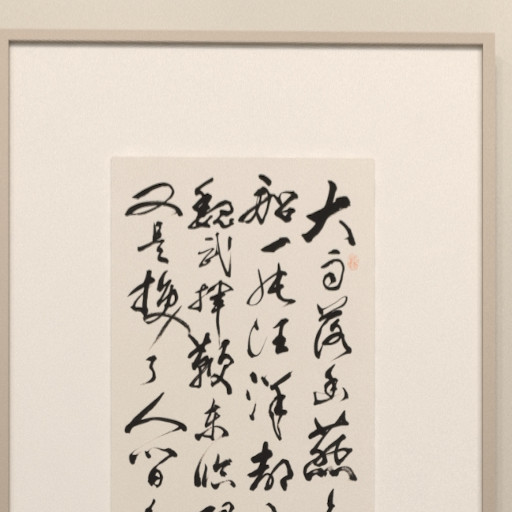 大雨落幽燕
船一片汪洋都
魏武揮鞭东临
又是换了人间